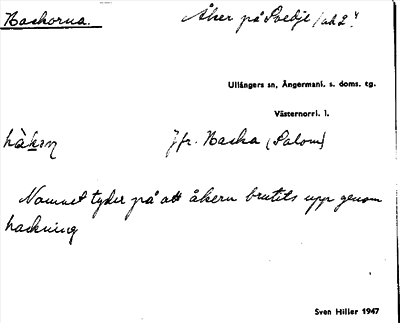 Hackorna. Åker på Soedje (akt 2)
Ullångers sn, Ångermanl. s. doms. tg.
Västernorrl. l.
hàkɐɳ Jfr. Hacka (Salom)
Namnet tyder på att åkern brutits upp genom
hackning
Sven Hiller 1947